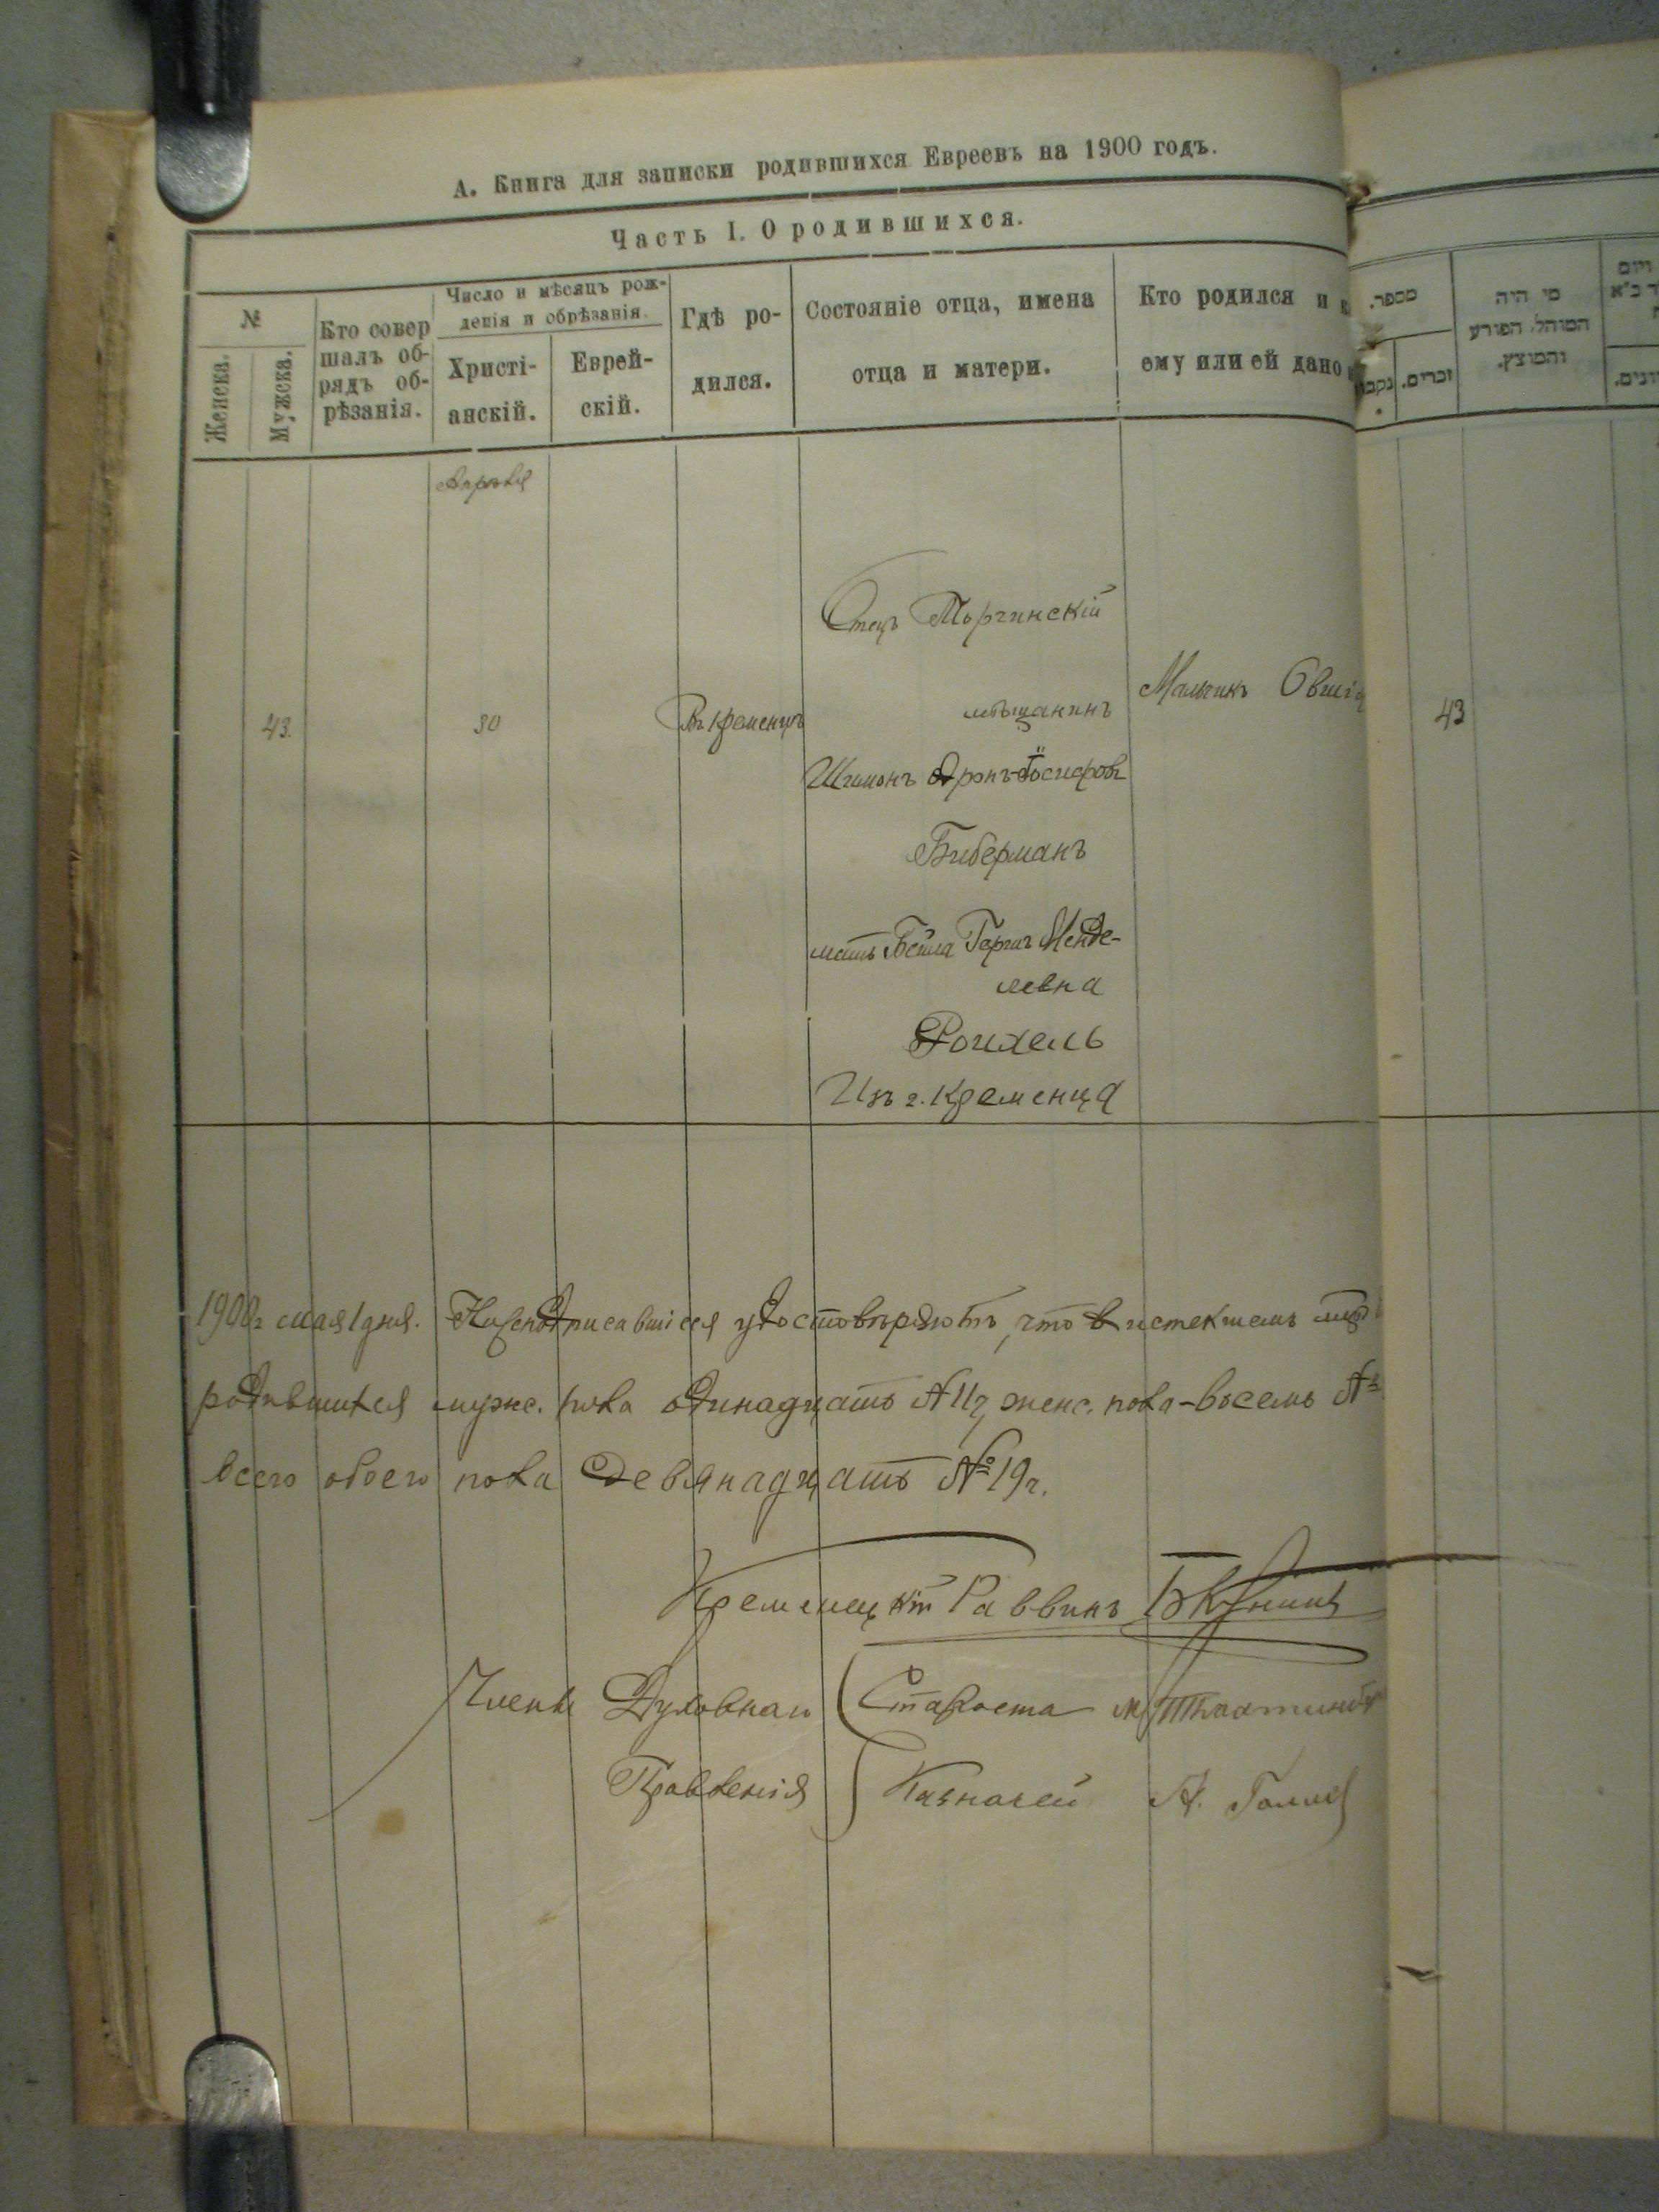 А. Книга для записки родившихся Евреевъ на 1900 годъ.
Часть I. О родившихся.
№
Женска.
Мужска.
Кто совер
шалъ об-
рядъ об-
рѣзанія.
Число и мѣсяцъ рож-
денія и обрѣзанія.
Христі-
анскій.
Еврей-
скій.
Гдѣ ро-
дился.
Состояніе отца, имена
отца и матери.
Кто родился и
ему или ей дано
מספר.
זכרים.
מי היה
המוהל, הפורע
והמוצץ.
Апрѣля
43.
30
Въ Кременцѣ
Отецъ
мѣщанинъ
Шимонъ
Биберманъ
мать Бейла Менде-
левна
Ройхель
Изъ г. Кременца
Мальчикъ
43
1900г. мая 1 дня. Нижеподписавшіеся удостовѣряютъ, что в истекшемъ
родившихся мужс. пола одинадцать № 11, женс. пола-восемь №
всего обоего пола девянадцать № 19
Кременецкій Раввинъ
Члены Духовнаго Староста
Правленія Казначей